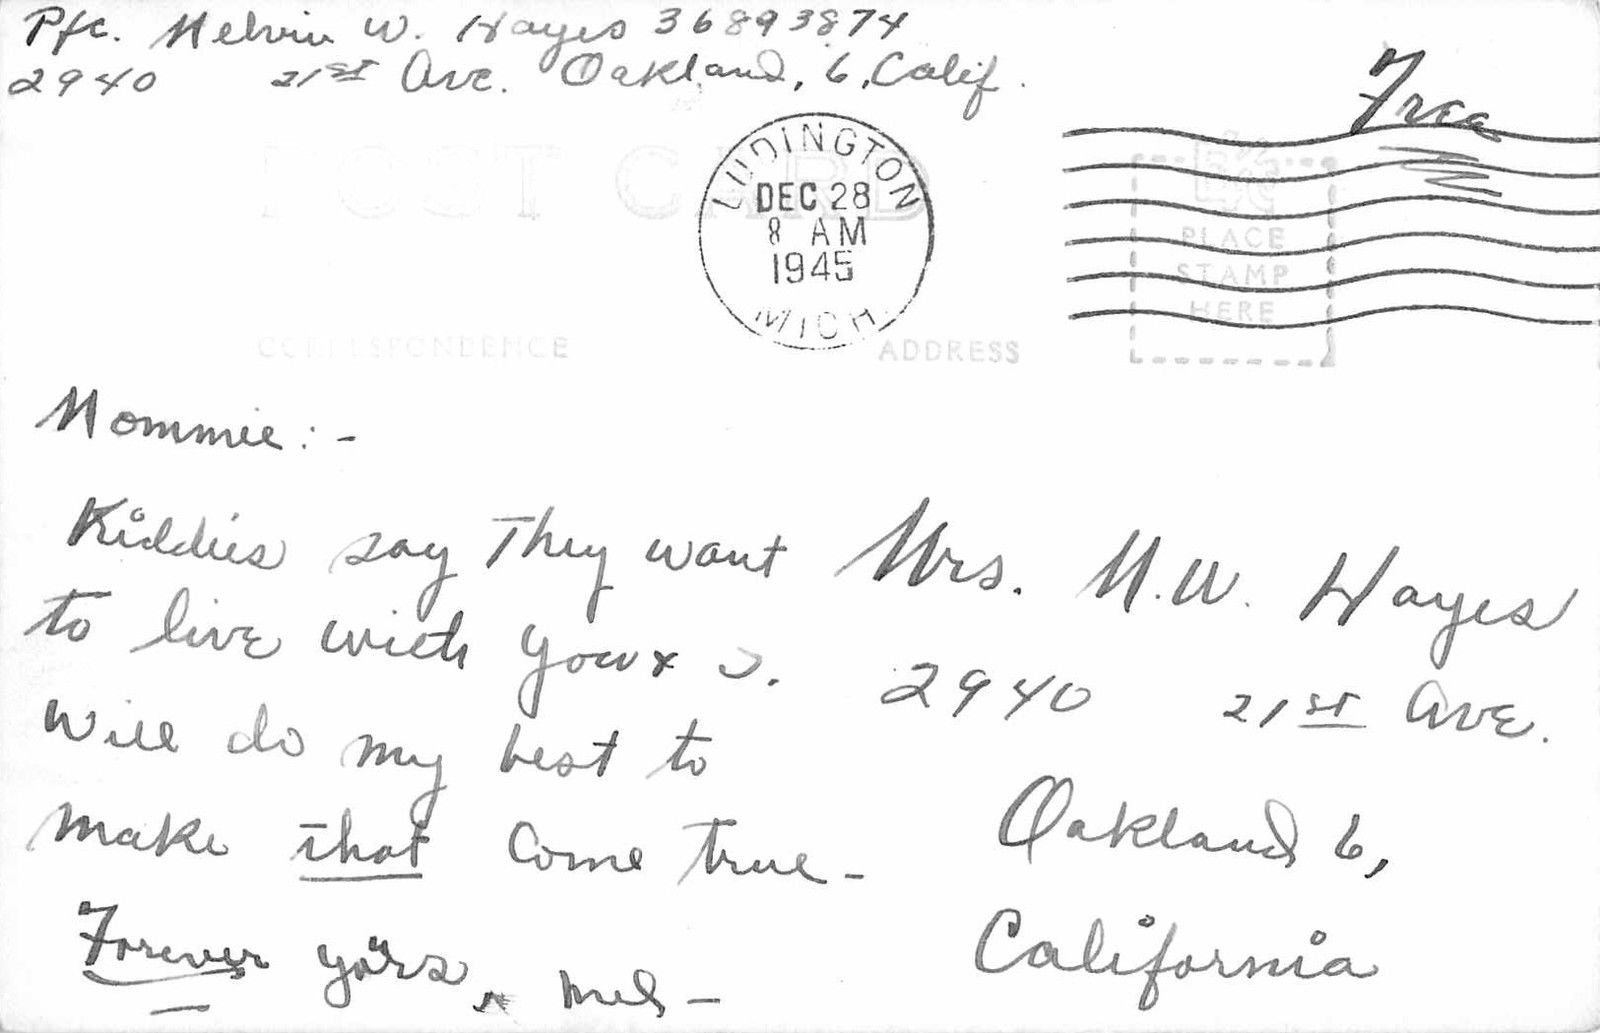 Pfc. Melvin W. Hayes 36893874
2940 21st Ave. Oakland, 6, Calif.
Free
POST CARD
LUDINGTON
DEC 28
8 AM
1945
MICH
PLACE
STAMP
HERE
CORRESPONDENCE
ADDRESS
Mommie:-
Kiddies say They want
to live with You + I.
Will do my best to
make that come true-
Forever yours, Mel-
Mrs. M.W. Hayes
2940 21st Ave.
Oakland 6,
California